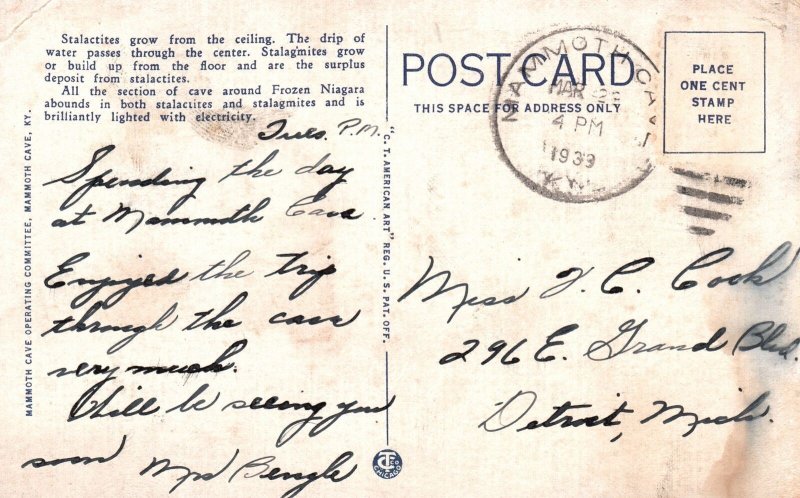 Stalactites grow from the ceiling. The drip of
water passes through the center. Stalagmites grow
or build up from the floor and are the surplus
deposit from stalactites.
All the section of cave around Frozen Niagara
abounds in both stalactites and stalagmites and is
brilliantly lighted with electricity.
Tues. P.M.
Spending the day
at Mammoth Cave
Enjoyed the trip
through the cave
very much.
Will be seeing you
soon
MAMMOTH CAVE OPERATING COMMITTEE, MAMMOTH CAVE, KY.
"C. T. AMERICAN ART" REG. U. S. PAT. OFF.
CHICAGO
POST CARD
THIS SPACE FOR ADDRESS ONLY
MAMMOTH CAVE
MAR
4 PM
1933
KY.
PLACE
ONE CENT
STAMP
HERE
Miss F. C. Cook
296 E. Grand Blvd.
Detroit, Mich.